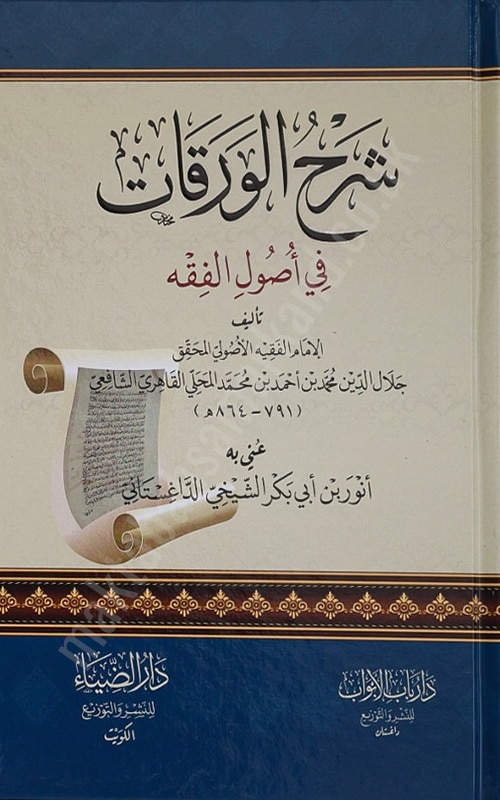 شَرْحُ الوَرَقَات
فِي أُصُولِ الفِقْه
تأليف
الإمام الفقيه الأصولي المحقق
جلال الدّين محمّد بن أحمد بن محمّد المحلّي القاهريّ الشّافعيّ
(٧٩١-٨٦٤هـ)
عُني به
أنور بن أبي بكر الشّيخيّ الدّاغستانيّ
دار باب الأبواب
للنشر والتوزيع
داغستان
دار الضّياء
للنشر والتوزيع
الكويت